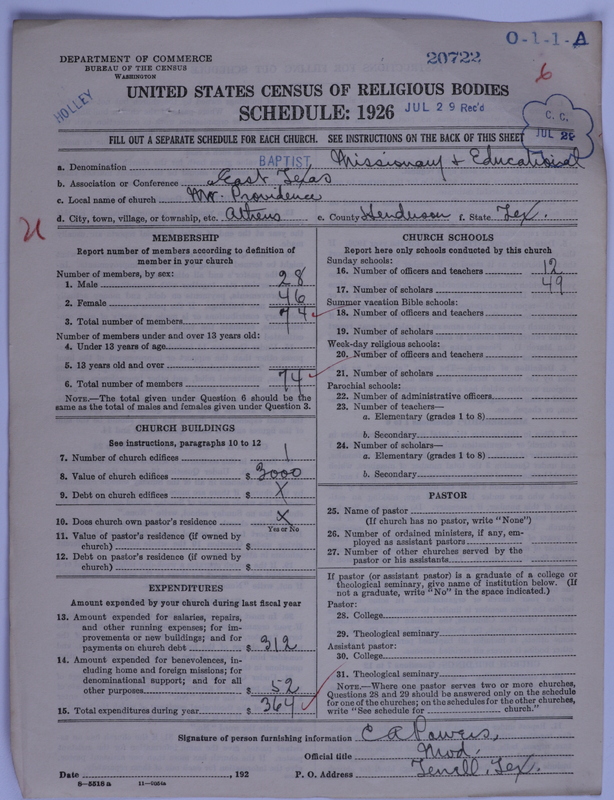 O-1-1-A
20722
6
DEPARTMENT OF COMMERCE
BUREAU OF THE CENSUS
WASHINGTON
HOLLEY
UNITED STATES CENSUS OF RELIGIOUS BODIES
SCHEDULE: 1926 JUL 29 Rec'd
C. C.
JUL 28
FILL OUT A SEPARATE SCHEDULE FOR EACH CHURCH. SEE INSTRUCTIONS ON THE BACK OF THIS SHEET
a. Denomination BAPTIST Missionary & Educational
b. Association or Conference East Texas
c. Local name of church Mt. Providence
d. City, town, village, or township, etc. Athens e. County Henderson f. State Tex.
MEMBERSHIP
Report number of members according to definition of
member in your church
Number of members, by sex:
1. Male 28
2. Female 46
3. Total number of members 74
Number of members under and over 13 years old:
4. Under 13 years of age
5. 13 years old and over
6. Total number of members 74
NOTE.—The total given under Question 6 should be the
same as the total of males and females given under Question 3.
CHURCH BUILDINGS
See instructions, paragraphs 10 to 12
7. Number of church edifices 1
8. Value of church edifices $ 3000
9. Debt on church edifices $ X
10. Does church own pastor's residence X
Yes or No
11. Value of pastor's residence (if owned by
church) $
12. Debt on pastor's residence (if owned by
church) $
EXPENDITURES
Amount expended by your church during last fiscal year
13. Amount expended for salaries, repairs,
and other running expenses; for im-
provements or new buildings; and for
payments on church debt $ 312
14. Amount expended for benevolences, in-
cluding home and foreign missions; for
denominational support; and for all
other purposes $ 52
15. Total expenditures during year $ 364
CHURCH SCHOOLS
Report here only schools conducted by this church
Sunday schools:
16. Number of officers and teachers 12
17. Number of scholars 49
Summer vacation Bible schools:
18. Number of officers and teachers
19. Number of scholars
Week-day religious schools:
20. Number of officers and teachers
21. Number of scholars
Parochial schools:
22. Number of administrative officers
23. Number of teachers—
a. Elementary (grades 1 to 8)
b. Secondary
24. Number of scholars—
a. Elementary (grades 1 to 8)
b. Secondary
PASTOR
25. Name of pastor
(If church has no pastor, write "None")
26. Number of ordained ministers, if any, em-
ployed as assistant pastors
27. Number of other churches served by the
pastor or his assistants
If pastor (or assistant pastor) is a graduate of a college or
theological seminary, give name of institution below. (If
not a graduate, write "No" in the space indicated.)
Pastor:
28. College
29. Theological seminary
Assistant pastor:
30. College
31. Theological seminary
NOTE.—Where one pastor serves two or more churches,
Questions 28 and 29 should be answered only on the schedule
for one of the churches; on the schedules for the other churches,
write "See schedule for church."
Signature of person furnishing information C A Powers,
Official title Mod.
Date , 192 P. O. Address Terrell, Tex.
8—5518 a 11—9054a